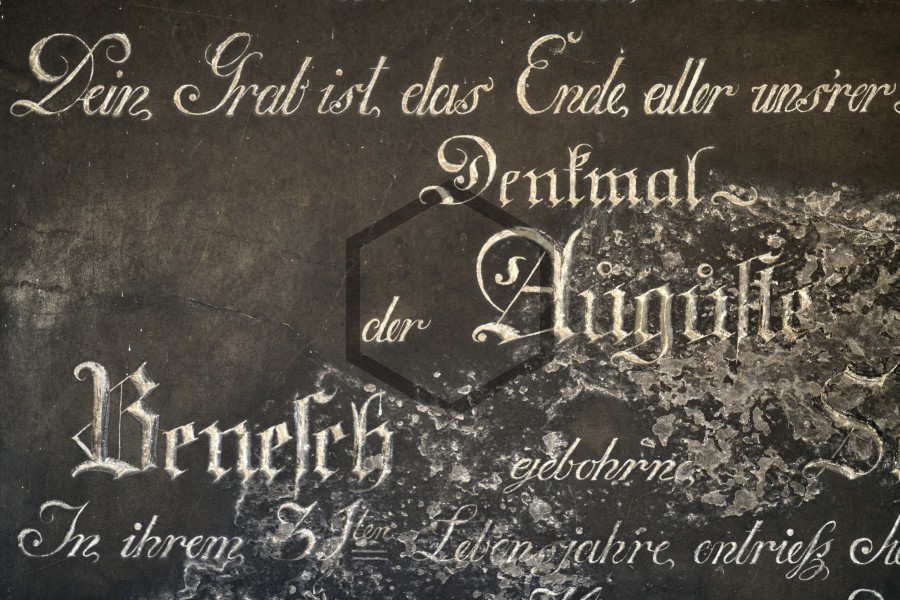 Dein Grab ist das Ende aller uns'rer
Denkmal
der Auguste
Benesch gebohrne
In ihrem 31ten Lebensjahre entrieß